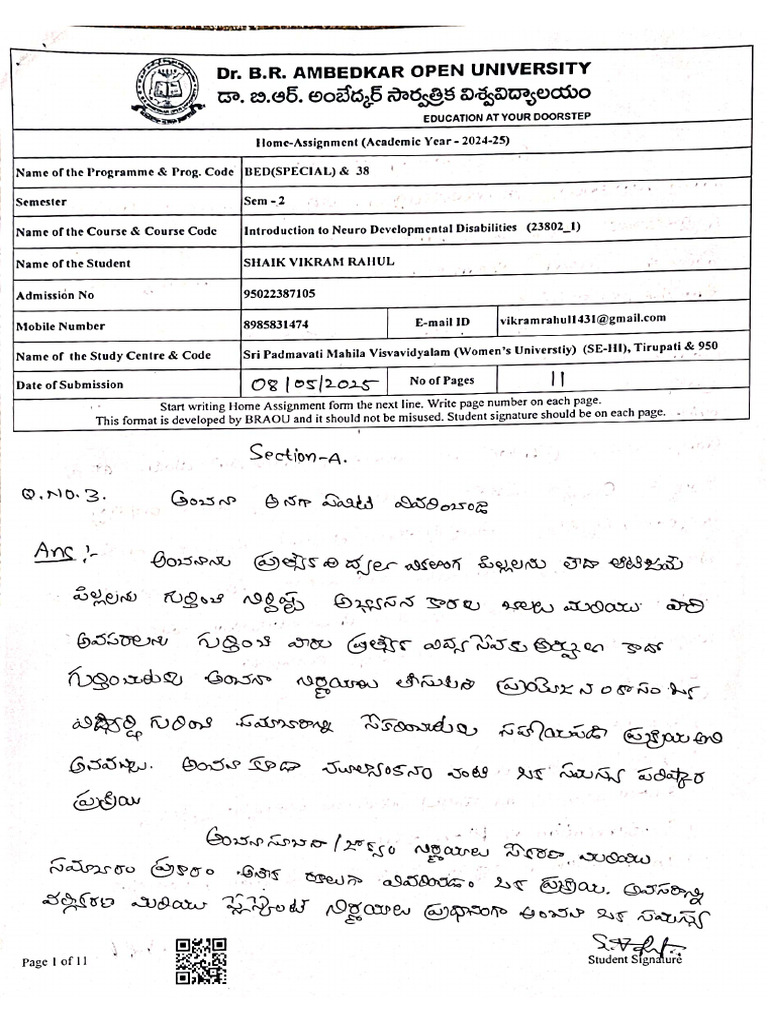 Dr. B.R. AMBEDKAR OPEN UNIVERSITY
డా. బి.ఆర్. అంబేద్కర్ సార్వత్రిక విశ్వవిద్యాలయం
EDUCATION AT YOUR DOORSTEP
Home-Assignment (Academic Year - 2024-25)
Name of the Programme & Prog. Code BED(SPECIAL) & 38
Semester Sem - 2
Name of the Course & Course Code Introduction to Neuro Developmental Disabilities (23802_1)
Name of the Student SHAIK VIKRAM RAHUL
Admission No 95022387105
Mobile Number 8985831474 E-mail ID vikramrahul1431@gmail.com
Name of the Study Centre & Code Sri Padmavati Mahila Visvavidyalam (Women's Universtiy) (SE-HI), Tirupati & 950
Date of Submission 08/05/2025 No of Pages 11
Start writing Home Assignment form the next line. Write page number on each page.
This format is developed by BRAOU and it should not be misused. Student signature should be on each page.
Section-A.
Q.NO.3. అంచనా అనగా ఏమిటి వివరించండి
Ans :- అంచనాను ప్రత్యేక వికలాంగ పిల్లలను లేదా ఆటిజమ్
పిల్లలను గుర్తించి నిర్దిష్ట అభ్యసన మరియు వారి
అవసరాలను గుర్తించి వారు ప్రత్యేక విద్య సేవకు కాదో
అంచనా నిర్ణయాలు ప్రయోజనం కోసం ఒక
గురించి సమాచారాన్ని ప్రక్రియ అని
అనవచ్చు. అంచనా కూడా మూల్యాంకనం వంటి ఒక సమస్య పరిష్కార
ప్రక్రియ
నిర్ణయాలు మరియు
సమాచారం ప్రకారం వివరించడం ఒక ప్రక్రియ. అవసరాన్ని
మరియు ప్లేస్మెంట్ నిర్ణయాలు ప్రధానంగా అంచనా ఒక సమస్య
Page 1 of 11
Student Signature